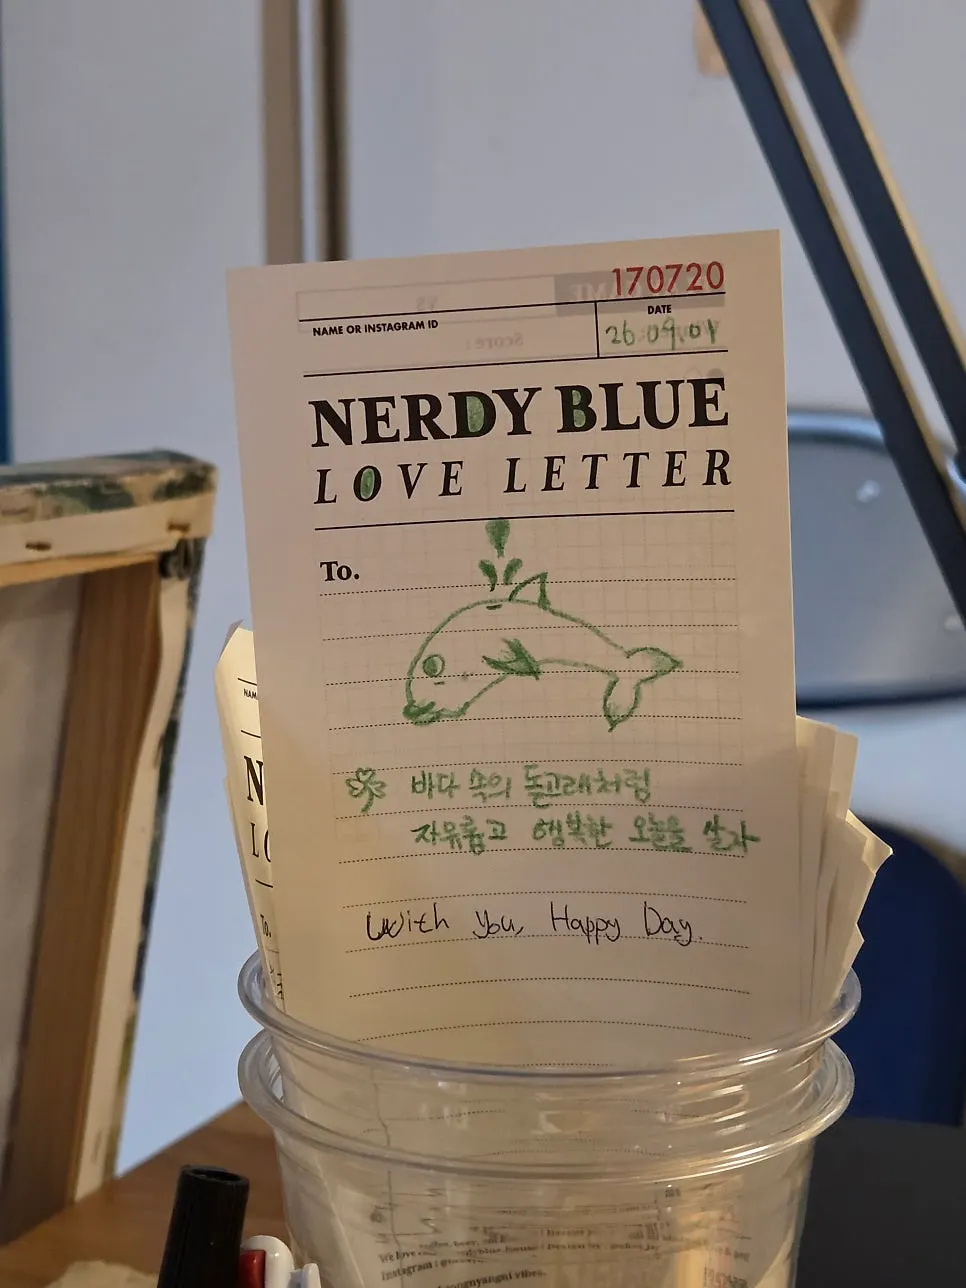 170720
NAME OR INSTAGRAM ID
DATE
26.09.01
NERDY BLUE
LOVE LETTER
To.
바다 속의 돌고래처럼
자유롭고 행복한 오늘을 살자
With You, Happy Day.
N
L
To.
We love
Instagram :
vibes.